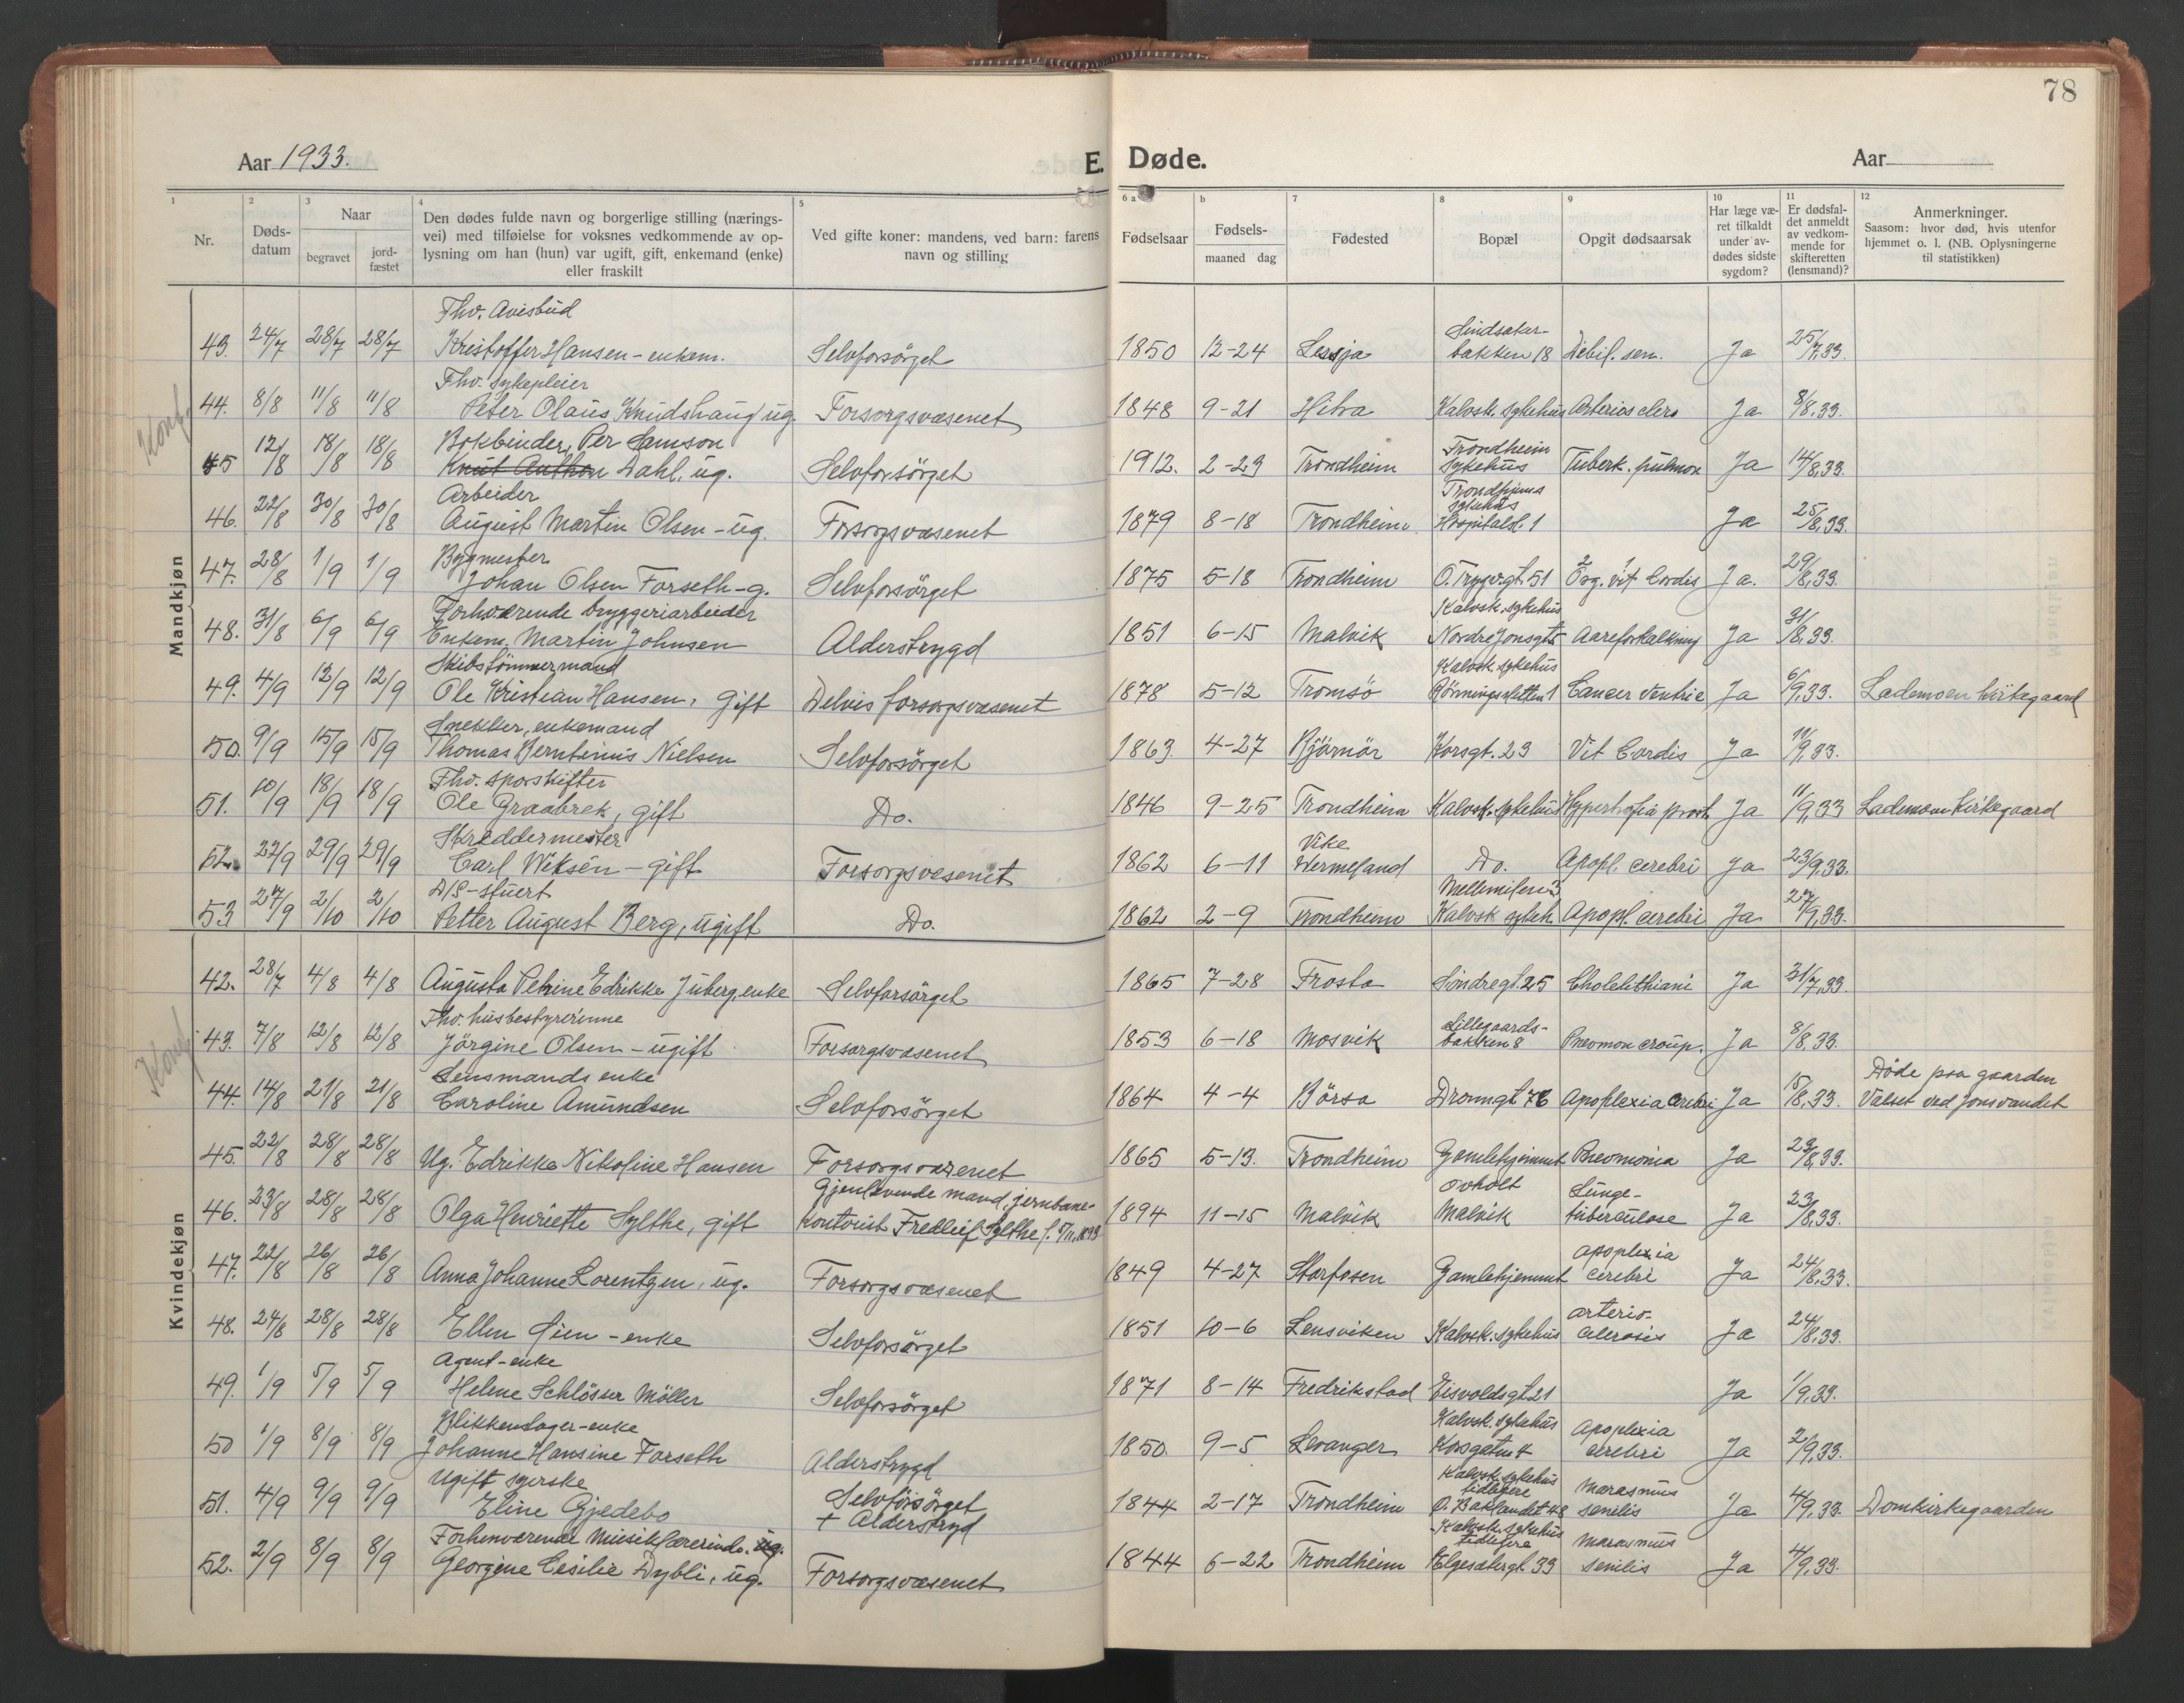 78
Aar 1933.
E. Døde.
Aar
1
2
3
4
5
6 a
b
7
8
9
10
11
12
Nr.
Døds-
datum
Naar
begravet
jord-
fæstet
Den dødes fulde navn og borgerlige stilling (nærings-
vei) med tilføielse for voksnes vedkommende av op-
lysning om han (hun) var ugift, gift, enkemand (enke)
eller fraskilt
Ved gifte koner: mandens, ved barn: farens
navn og stilling
Fødselsaar
Fødsels-
maaned dag
Fødested
Bopæl
Opgit dødsaarsak
Har læge væ-
ret tilkaldt
under av-
dødes sidste
sygdom?
Er dødsfal-
det anmeldt
av vedkom-
mende for
skifteretten
(lensmand)?
Anmerkninger.
Saasom: hvor død, hvis utenfor
hjemmet o. l. (NB. Oplysningerne
til statistikken)
Mandkjøn
Thv. Avisbud
43. 24/7 28/7 28/7 Kristoffer Hansen - enkem. Selvforsörget 1850 12-24 Lesja bakken 18 Debil. sen. Ja 25/7.33.
Konf.
Thv. sykepleier
44. 8/8 11/8 11/8 Peter Olaus Knudshaug ug. Forsorgsvæsenet 1848 9-21 Hitra Kalvsk. sykehus Arteriosclero Ja 8/8.33.
Bokbinder, Per Samson Trondheim
45 12/8 18/8 18/8 Knut Anthon Dahl, ug. Selvforsörget 1912. 2-23 Trondheim sykehus Tuberk. pulmon Ja 14/8.33.
Arbeider Trondhjems
sykehus
46. 22/8 30/8 30/8 August Martin Olsen - ug. Forsorgsvæsenet 1879 8-18 Trondheim Hospitalsl. 1 Ja 25/8.33.
Bygmester
47. 28/8 1/9 1/9 Johan Olsen Forseth - g. Selvforsörget 1875 5-18 Trondheim O. Trygv.gt. 51 vit Cordis Ja. 29/8.33.
Forhværende bryggeriarbeider Kalvsk. sykehus
48. 31/8 6/9 6/9 Enkem. Martin Johnsen Alderstrygd 1851 6-15 Malvik Nordre Jonsgt 5 Aareforkalkning Ja 31/8.33.
Skibstömmermand Kalvsk. sykehus
49. 4/9 12/9 12/9 Ole Kristian Hansen, gift Delvis forsorgsvæsenet 1878 5-12 Tromsö Rönningsletten 1 Cancer ventric Ja 6/9.33. Lademoen kirkegaard
Snekker, enkemand
50. 9/9 15/9 15/9 Thomas Berntinus Nielsen Selvforsörget 1863. 4-27 Bjørnör Korsgt. 23 Vit Cordis Ja 11/9.33.
Thv. sporskifter
51. 10/9 18/9 18/9 Ole Graabrek, gift Do. 1846 9-25 Trondheim Kalvsk. sykehus Hypertrofia prost. Ja 11/9.33 Lademoen Kirkegaard
Skreddermester Vike
52. 22/9 29/9 29/9 Carl Wiksén - gift Forsorgsvesenet 1862 6-11 Wermeland Do. Apopl. cerebri Ja 23/9.33.
D/S-stuert Mellemilen 3
53 27/9 2/10 2/10 Petter August Berg, ugift Do. 1862 2-9 Trondheim Kalvsk sykeh. Apopl. cerebri Ja 27/9.33.
Kvindekjøn
42. 28/7 4/8 4/8 Augusta Petrine Edrikke Juberg enke Selvforsörget 1865 7-28 Frosta Söndregt. 25 Cholelithiani Ja 31/7.33.
Konf
Thv. husbestyrerinne Lillegaards-
43. 7/8 12/8 12/8 Jörgine Olsen - ugift Forsorgsvæsenet 1853 6-18 Mosvik bakken 8 Pnevmon croup. Ja 8/8.33.
Lensmands enke Døde paa gaarden
44. 14/8 21/8 21/8 Caroline Amundsen Selvforsörget 1864 4-4 Börsa Dronngt 7 Apoplexia cerebri Ja 15/8.33. Valset ved Jonsvandet
45. 22/8 28/8 28/8 Ug. Edrikke Nikoline Hansen Forsorgsvæsenet 1865 5-13. Trondheim Gamlehjemmet Pnevmonia Ja 23/8.33.
Gjenlevende mand, jernbane- ovholt Lunge-
46. 23/8 28/8 28/8 Olga Henriette Sylthe, gift kontorist Fredleif Sylthe f. 1893 1894 11-15 Malvik Malvik tuberculose Ja 23/8.33.
apoplexia
47. 22/8 26/8 26/8 Anna Johanne Lorentzen, ug. Forsorgsvæsenet 1849 4-27 Storfosen Gamlehjemmet cerebri Ja 24/8.33.
arterio-
48. 24/8 28/8 28/8 Ellen Öien - enke Selvforsörget 1851 10-6 Lensviken Kalvsk. sykehus clerosis Ja 24/8.33.
Agent-enke
49. 1/9 5/9 5/9 Helene Schlösser Möller Selvforsörget 1871 8-14 Fredrikstad Eisvoldsgt 21 Ja 1/9.33.
Blikkenslager-enke Kalvsk. sykehus Apoplexia
50 1/9 8/9 8/9 Johanne Hansine Forseth Alderstrygd 1850. 9-5 Levanger Korsgaten 4 cerebri Ja 2/9.33.
Ugift syerske Selvforsörget Kalvsk. sykehus
tidligere marasmus
51. 4/9 9/9 9/9 Eline Gjedebo + Alderstryd 1844 2-17 Trondheim Ö. Baklandet 48 senilis Ja 4/9.33. Domkirkegaarden
Forhenværende Musiklærerinde. ug. Kalvsk. sykehus
tidligere marasmus
52. 2/9 8/9 8/9 Georgine Cecilie Dybli, ug. Forsorgsvæsenet 1844 6-22 Trondheim Elgesætergt. 33 senilis Ja 4/9.33.